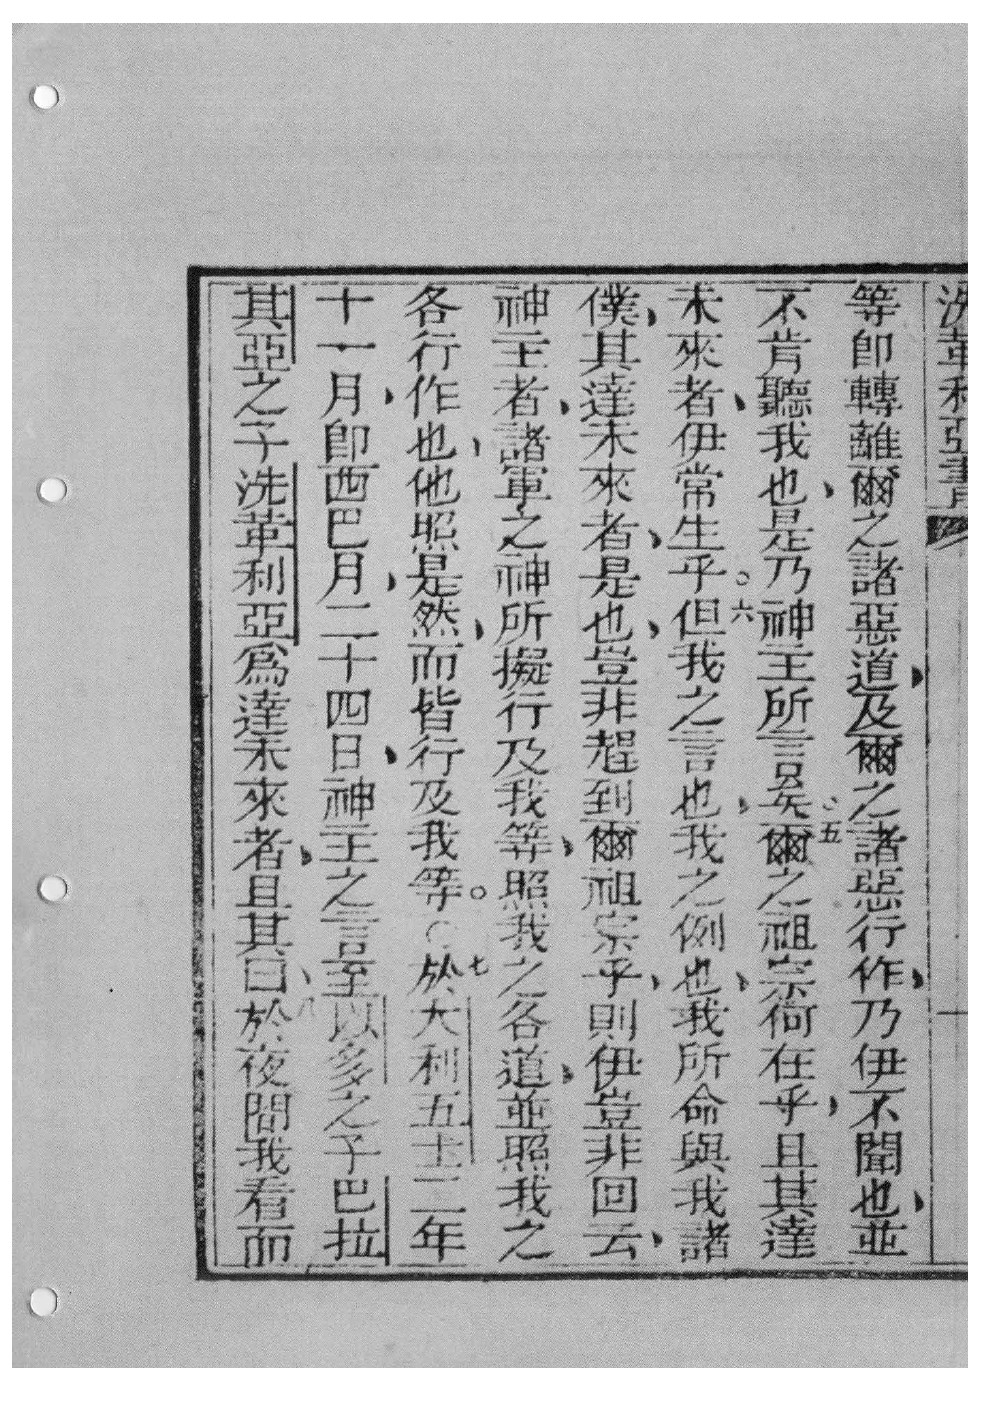 洗革利亞書
一
等卽轉離爾之諸惡道、及爾之諸惡行作、乃伊不聞也、並
不肯聽我也、是乃神主所言矣。五爾之祖宗何在乎、且其達
未來者、伊常生乎。六但我之言也、我之例也、我所命與我諸
僕、其達未來者、是也、豈非趕到爾祖宗乎、則伊豈非回云、
神主者、諸軍之神所擬行及我等、照我之各道、並照我之
各行作也、他照是然、而皆行及我等。○七於大利五士二年
十一月、卽西巴月、二十四日、神主之言至以多之子巴拉
其亞之子洗革利亞爲達未來者、且其曰、八於夜間我看而